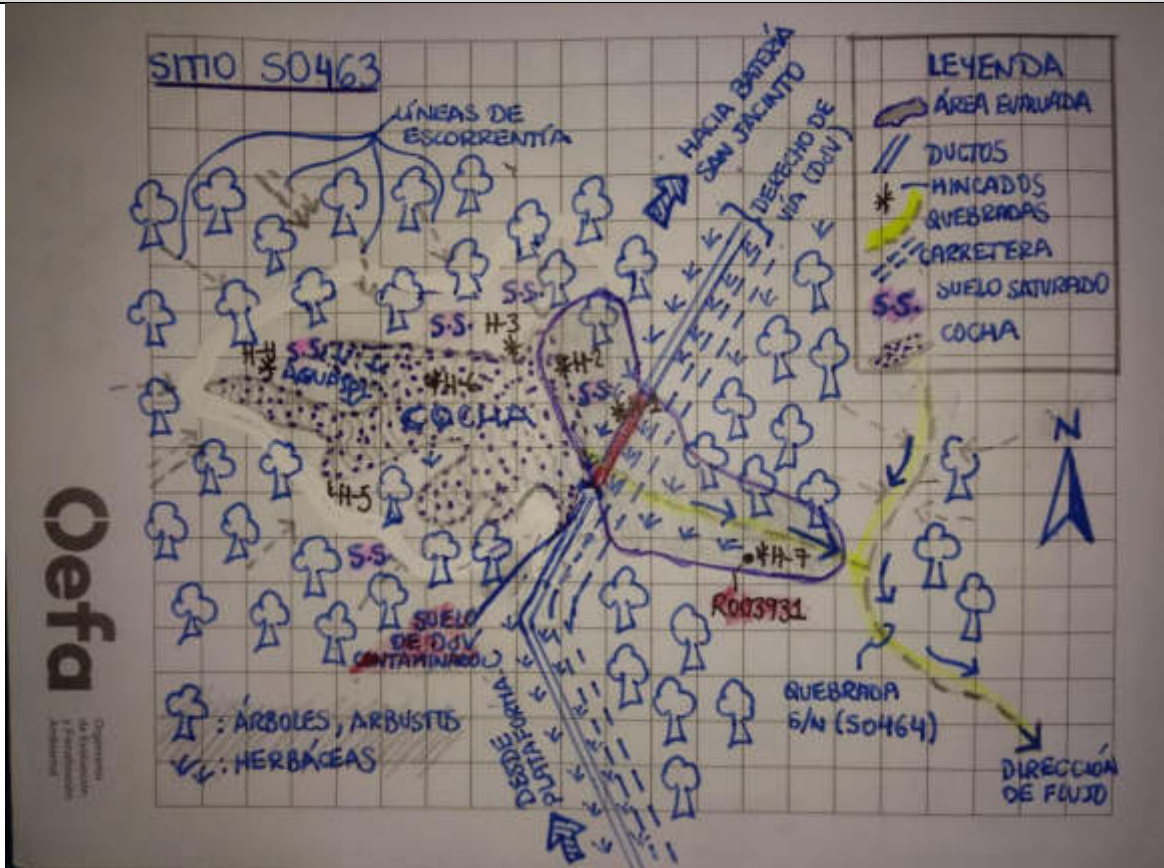 SITIO S0463
LÍNEAS DE
ESCORRENTÍA
HACIA BATERÍA
SAN JACINTO
DERECHO DE
VÍA (DdV)
LEYENDA
ÁREA EVALUADA
DUCTOS
HINCADOS
QUEBRADAS
CARRETERA
S.S. SUELO SATURADO
COCHA
S.S.
S.S. H-3
H-2
S.S.
H-6
COCHA
H-5
S.S.
H-7
R003931
N
SUELO
DE DdV
CONTAMINADO
: ÁRBOLES, ARBUSTOS
: HERBÁCEAS
DESDE
PLATAFORMA
QUEBRADA
S/N (S0464)
DIRECCIÓN
DE FLUJO
Oefa
Organismo
de Evaluación
y Fiscalización
Ambiental